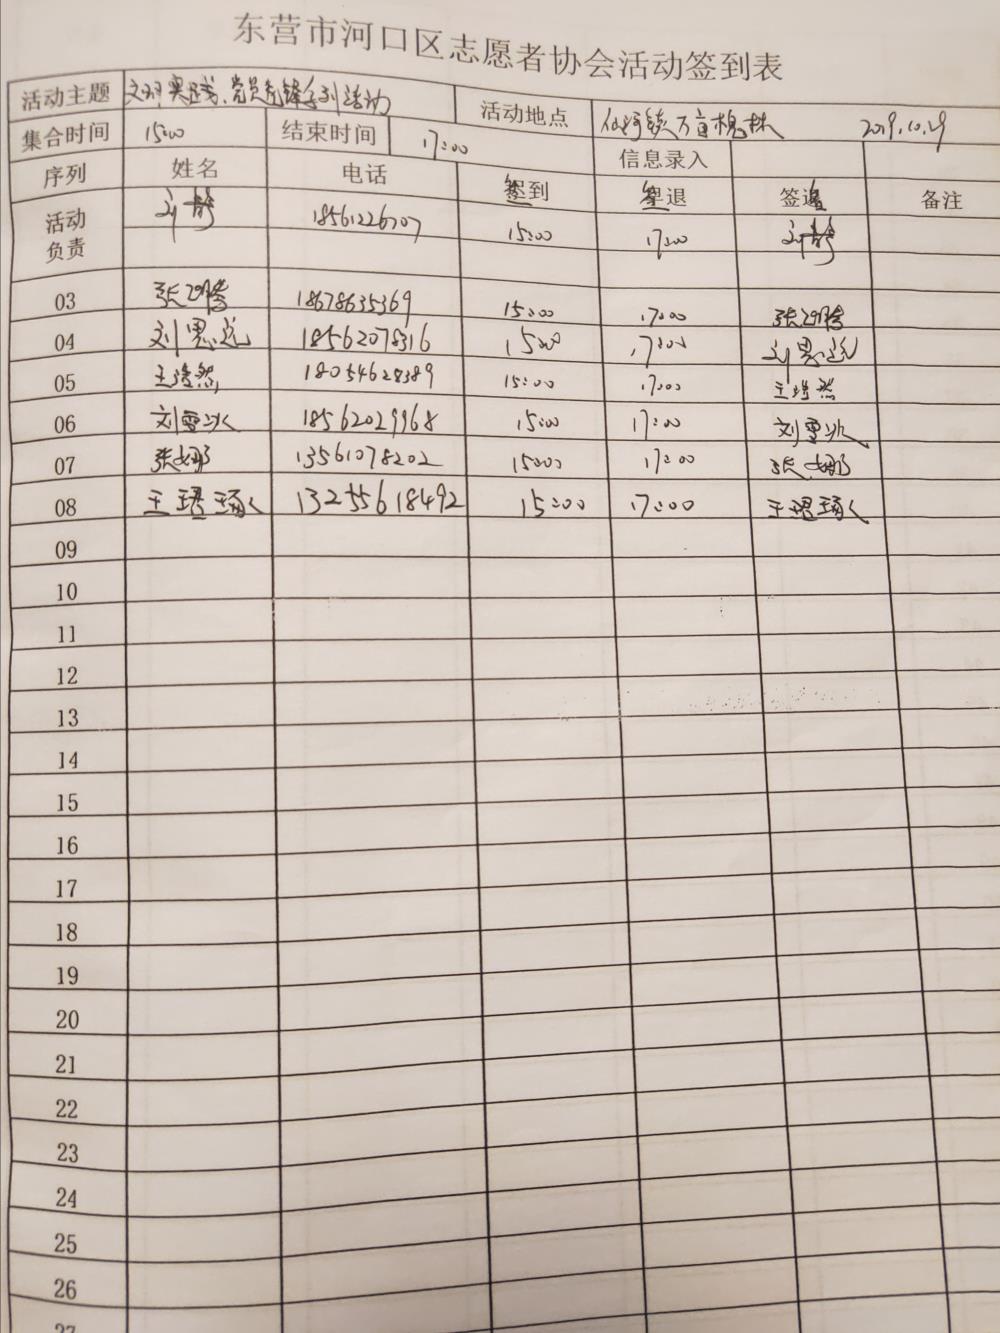 东营市河口区志愿者协会活动签到表
活动主题 文明实践、党员先锋系列活动 活动地点 仙河镇万亩槐林 2019.10.29
集合时间 15:00 结束时间 17:00 信息录入
序列 姓名 电话 签到 签退 签退 备注
活动负责 刘静 18561226707 15:00 17:00 刘静
03 18678635369 15:00 17:00
04 刘思远 18562078316 15:00 17:00 刘思远
05 王浩然 18054628389 15:00 17:00 王浩然
06 刘雪冰 18562029968 15:00 17:00 刘雪冰
07 张娜 13561078202 15:00 17:00 张娜
08 王珺 13255618492 15:00 17:00 王珺
09
10
11
12
13
14
15
16
17
18
19
20
21
22
23
24
25
26
27